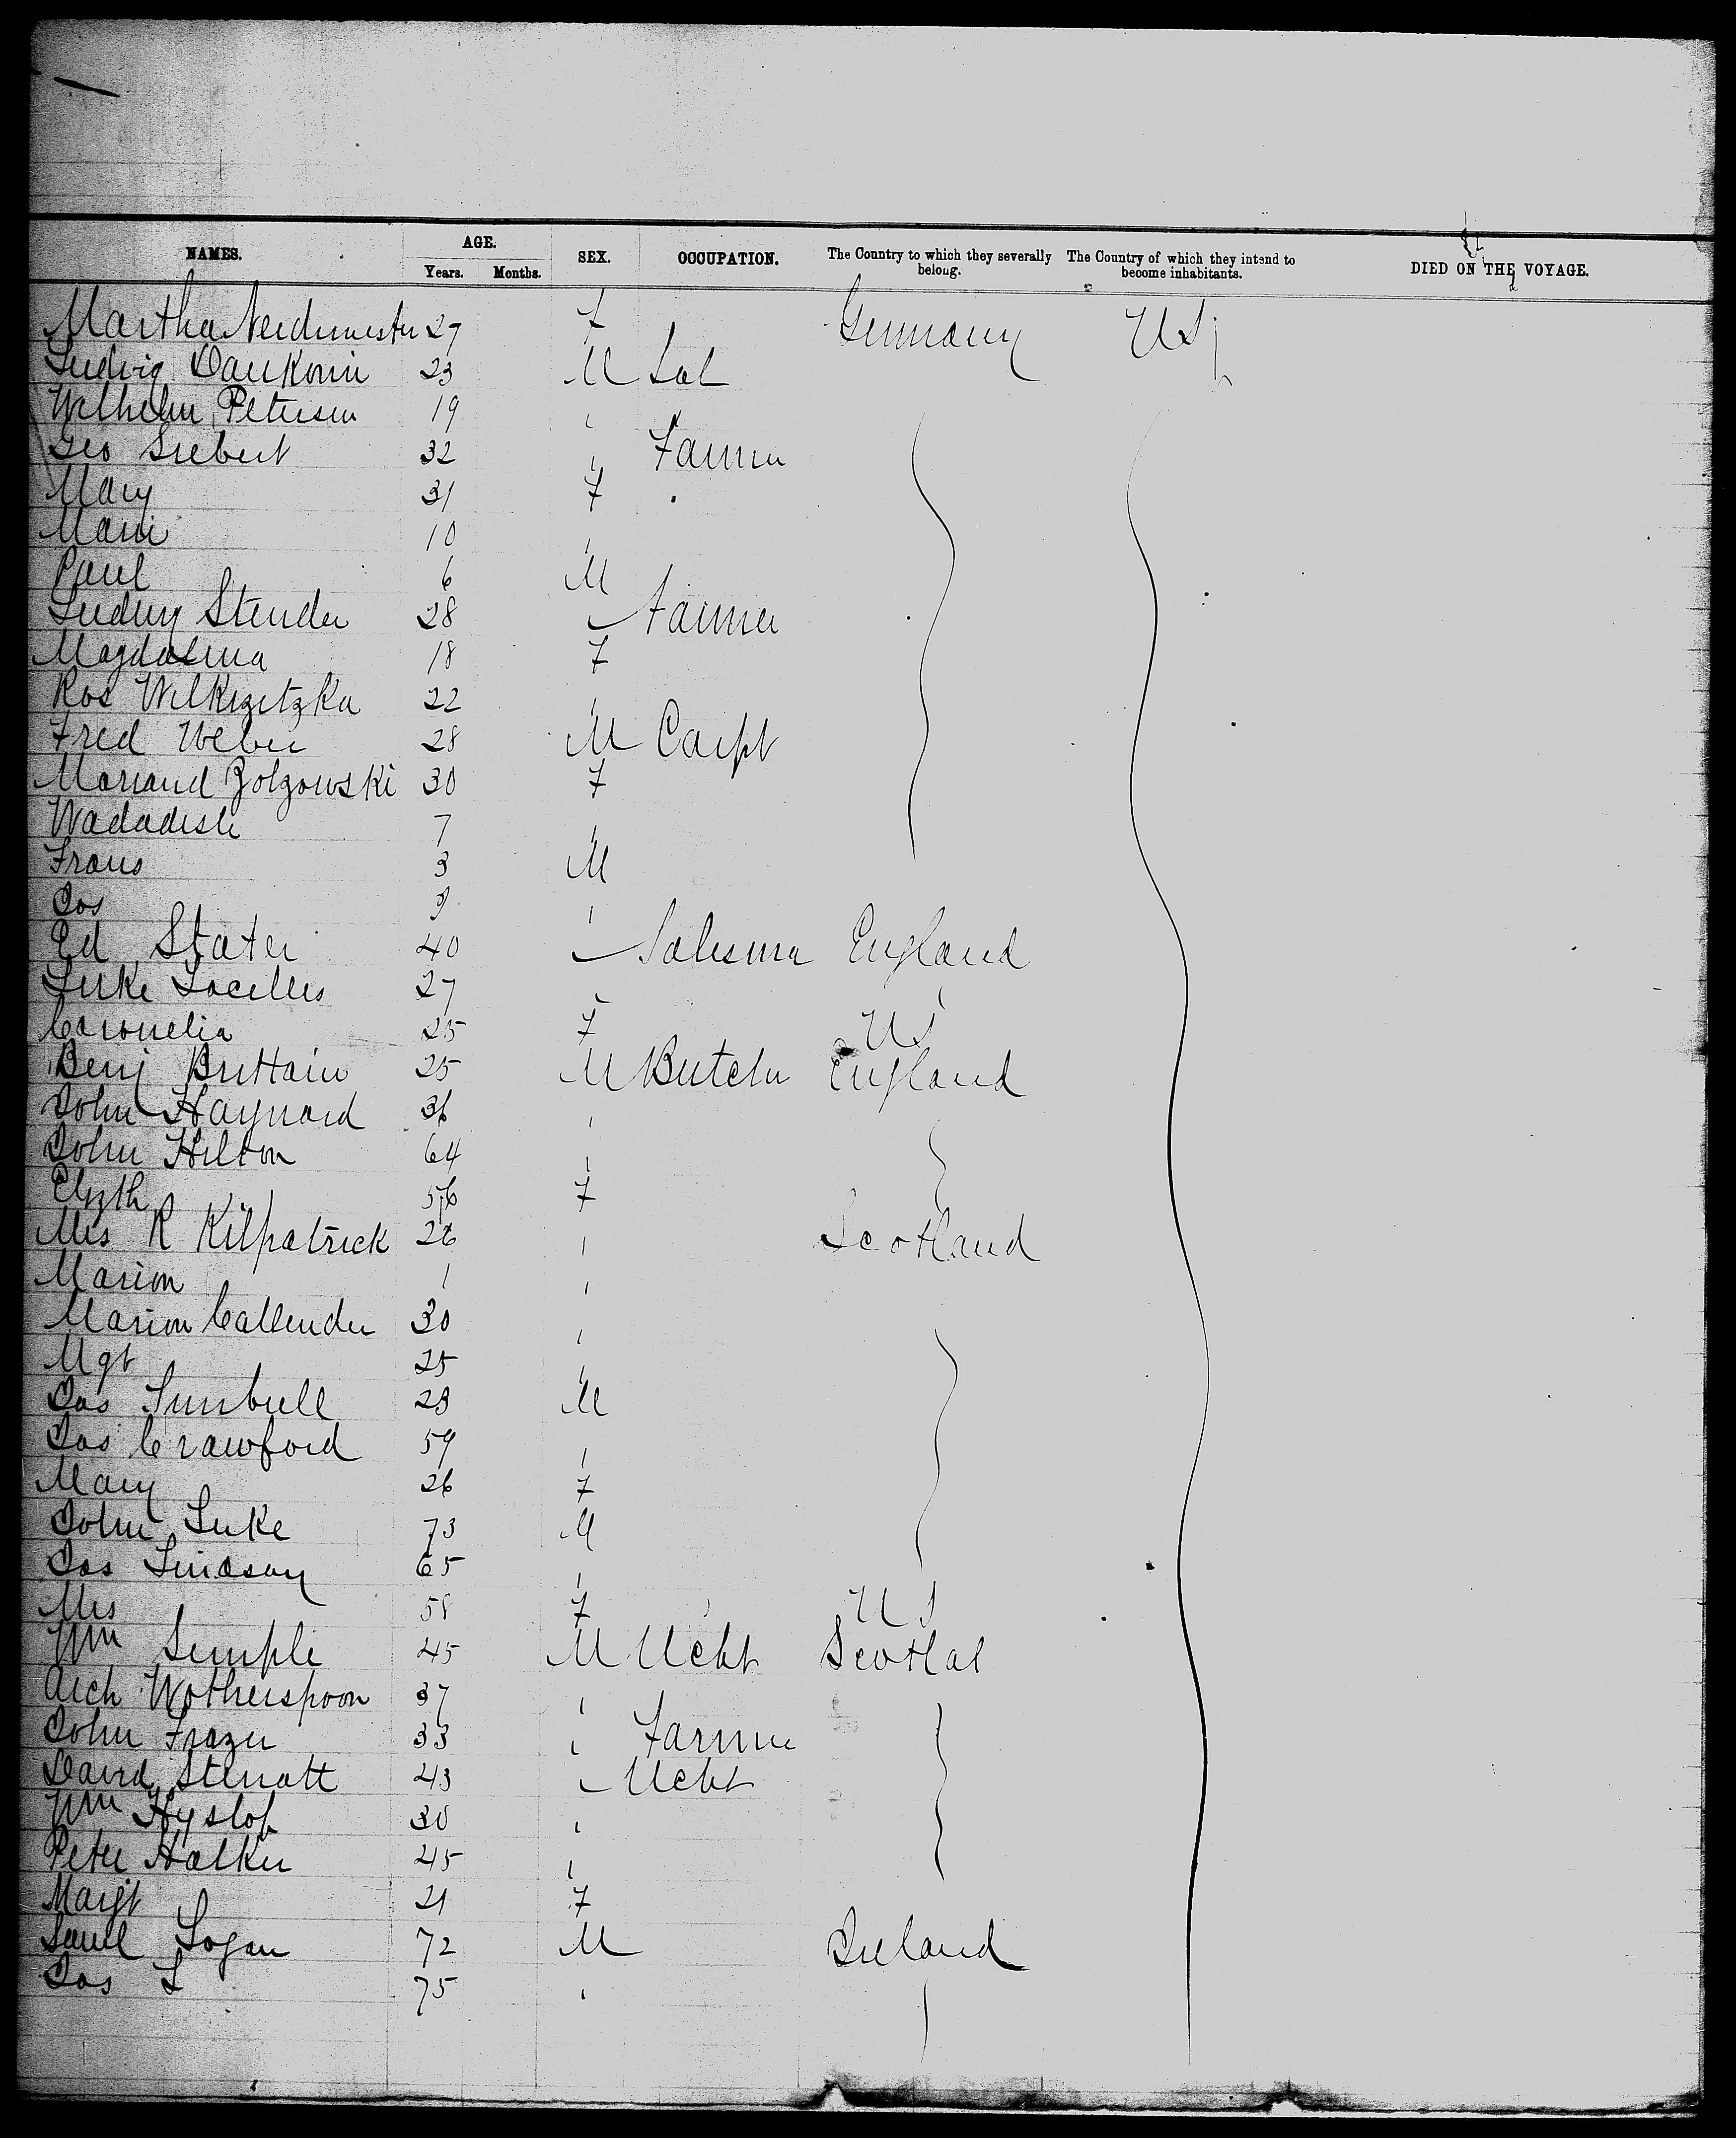 NAMES. AGE. SEX. OCCUPATION. The Country to which they severally belong. The Country of which they intend to become inhabitants. DIED ON THE VOYAGE.
Years. Months.
Martha 27 F Germany US
Ludwig 23 M Lab
Wilhelm Petersen 19 "
Geo Siebert 32 " Farmer
Mary 31 F
Marie 10 "
Paul 6 M
Ludwig Stender 28 " Farmer
Magdalena 18 F
Ros 22 "
Fred Weber 28 M Carpt
Zolzowski 30 F
7 "
Frans 3 M
Jos 3 "
Ed Slater 40 " Salesma England
Luke Lacelles 27 "
Cornelia 25 F US
Benj Brittain 25 M Butcher England
John Haynard 36 "
John Hilton 64 "
Elizth 56 F
Mrs R Kilpatrick 26 " Scotland
Marion 1 "
Marion Callender 30 "
Mgt 25 "
Jas Turnbull 23 M
Jas Crawford 59 "
Mary 26 F
John Luke 73 M
Jas Lindsay 65 "
Mrs 58 F US
Wm Semple 45 M Mcht Scotlad
Arch Wotherspoon 37 "
John Frazer 33 " Farmer
David Stenatt 43 " Mcht
Wm Hyslop 30 "
Peter Halker 45 "
Margt 21 F
Saml Logan 72 M Ireland
Jas L 75 "